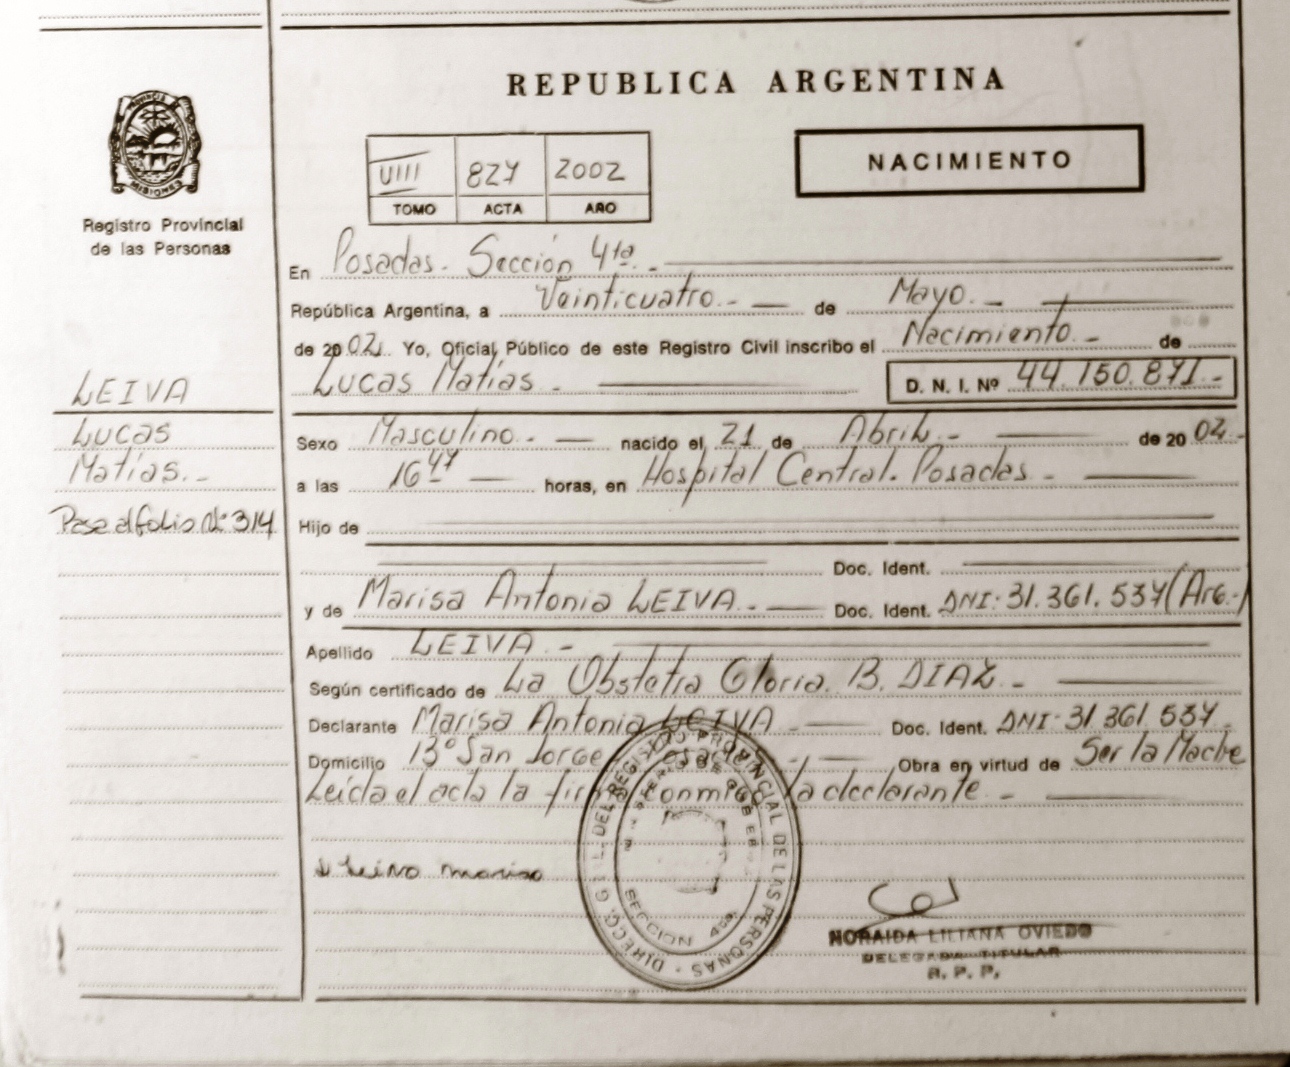 REPUBLICA ARGENTINA
PROVINCIA DE
MISIONES
Registro Provincial
de las Personas
VIII 827 2002
TOMO ACTA AÑO
NACIMIENTO
En Posadas. Sección 4ta.-
República Argentina, a Veinticuatro.- de Mayo.-
de 2002. Yo, Oficial Público de este Registro Civil inscribo el Nacimiento.- de
Lucas Matías.- D. N. I. Nº 44.150.871.-
LEIVA
Lucas
Matías.-
Pasa al folio Nº 314
Sexo Masculino.- nacido el 21 de Abril.- de 2002.-
a las 16 47 horas, en Hospital Central. Posadas.-
Hijo de
Doc. Ident.
y de Marisa Antonia LEIVA.- Doc. Ident. DNI: 31.361.537 (Arg.-)
Apellido LEIVA.-
Según certificado de La Obstetra Gloria. B. DIAZ.-
Declarante Marisa Antonia LEIVA.- Doc. Ident. DNI: 31.361.537
Domicilio 13º San Jorge Posadas.- Obra en virtud de Ser la Madre
Leída el acta la firma conmigo la declarante.-
Leiva marisa
DIRECC. GRAL. DEL REGISTRO PROVINCIAL DE LAS PERSONAS
SECCION 4ta.
NORAIDA LILIANA OVIEDO
DELEGADA TITULAR
R. P. P.